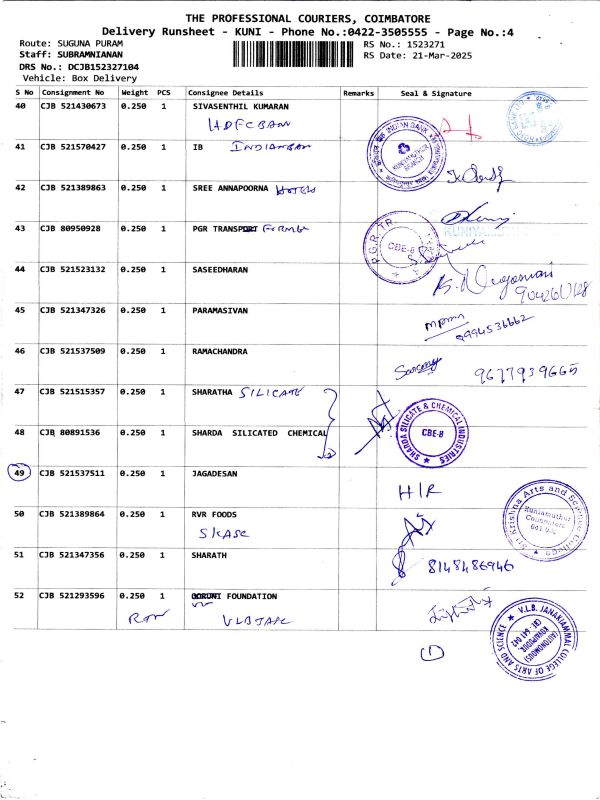 THE PROFESSIONAL COURIERS, COIMBATORE
Delivery Runsheet - KUNI - Phone No.:0422-3505555 - Page No.:4
Route: SUGUNA PURAM
RS No.: 1523271
Staff: SUBRAMNIANAN
RS Date: 21-Mar-2025
DRS No.: DCJB152327104
Vehicle: Box Delivery
S No Consignment No Weight PCS Consignee Details Remarks Seal & Signature
40 CJB 521430673 0.250 1 SIVASENTHIL KUMARAN
HDFCBAN
41 CJB 521570427 0.250 1 IB INDIANBAN
INDIAN BANK
KUNIAMUTHUR
BRANCH
42 CJB 521389863 0.250 1 SREE ANNAPOORNA HOTELS
43 CJB 80950928 0.250 1 PGR TRANSPORT
P.G.R. TR
CBE-8
44 CJB 521523132 0.250 1 SASEEDHARAN
45 CJB 521347326 0.250 1 PARAMASIVAN
8994536662
46 CJB 521537509 0.250 1 RAMACHANDRA
9677939665
47 CJB 521515357 0.250 1 SHARATHA SILICATE
48 CJB 80891536 0.250 1 SHARDA SILICATED CHEMICAL
SHARDA SILICATE & CHEMICAL INDUSTRIES
CBE-8
49 CJB 521537511 0.250 1 JAGADESAN
H/R
50 CJB 521389864 0.250 1 RVR FOODS
SKASC
Sri Krishna Arts and Science College
Kuniamuthur
Coimbatore
51 CJB 521347356 0.250 1 SHARATH
8148486946
52 CJB 521293596 0.250 1 FOUNDATION
VLBJASC
V.L.B. JANAKIAMMAL COLLEGE OF ARTS AND SCIENCE
(AUTONOMOUS)
KOVAIPUDUR,
CBE- 641 042
1